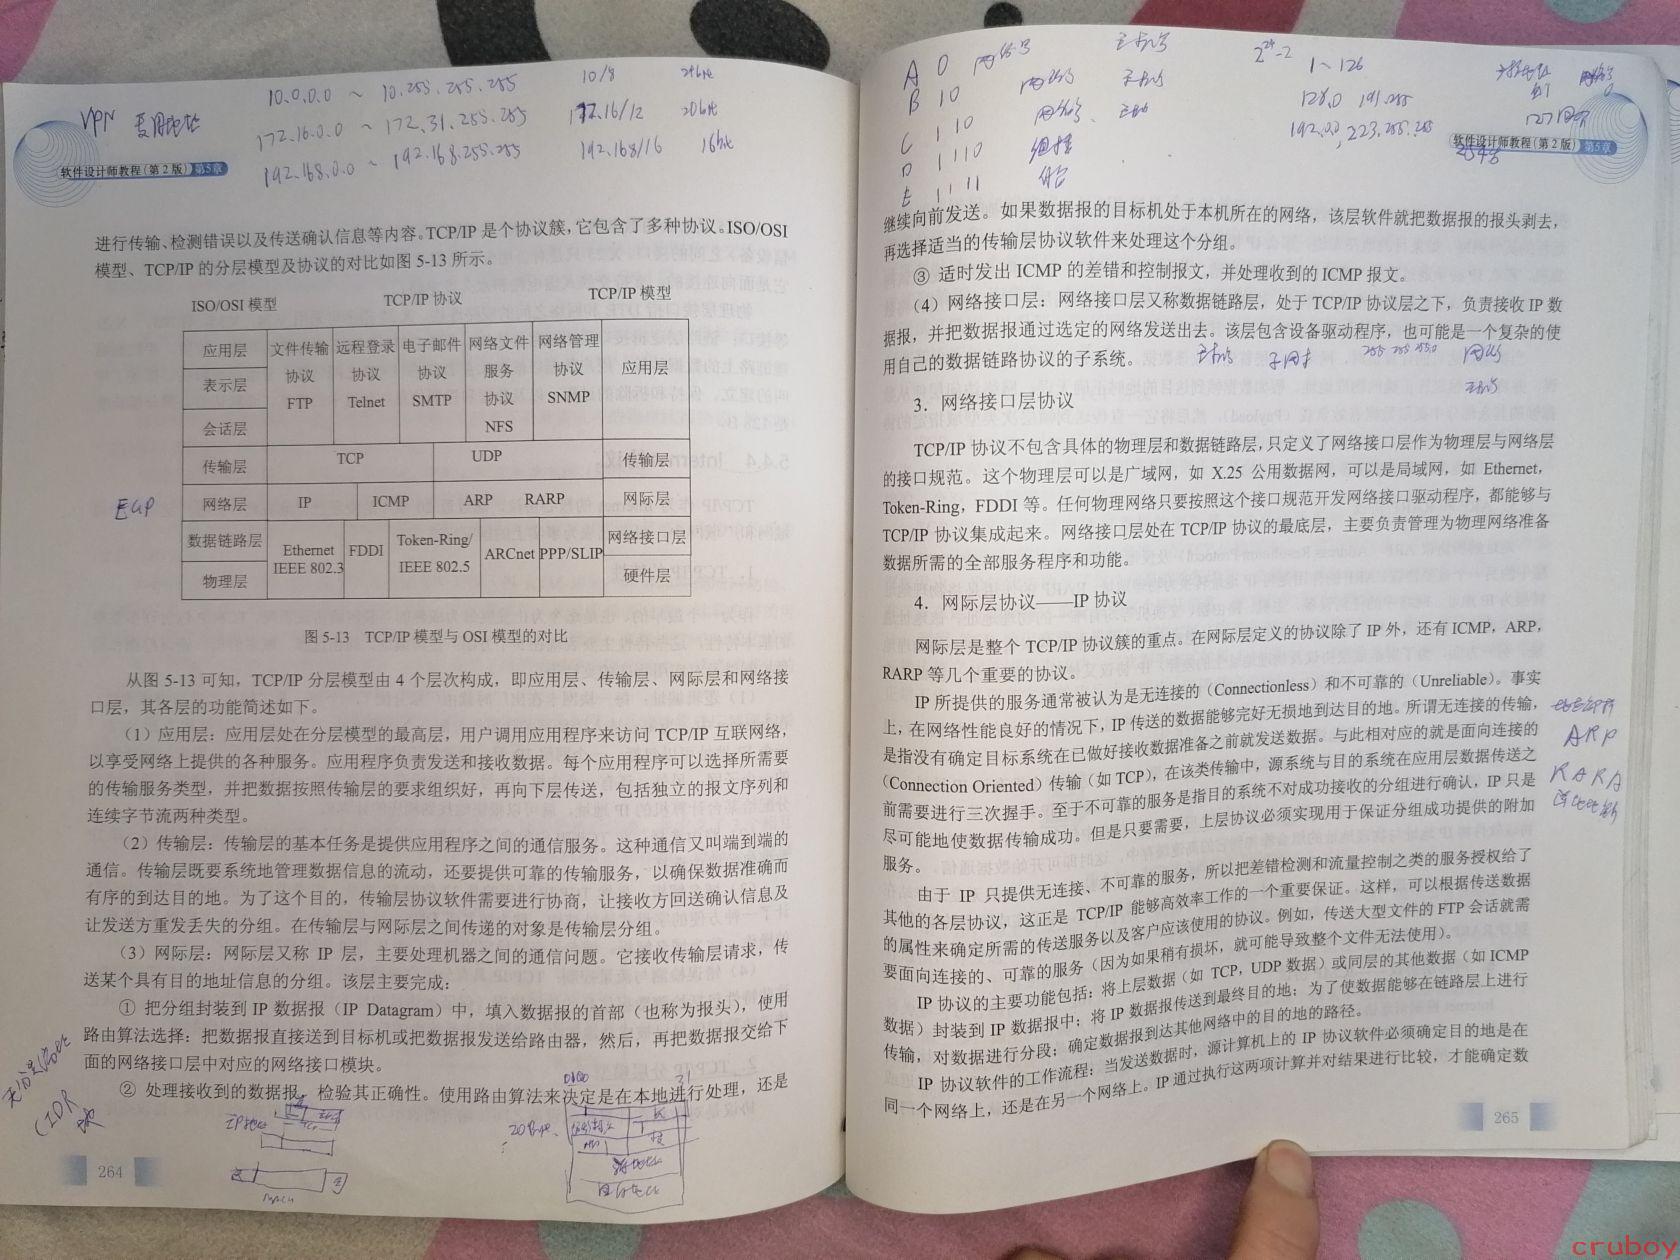 VPN 专用地址
10.0.0.0 ~ 10.255.255.255 10/8 24bit
172.16.0.0 ~ 172.31.255.255 172.16/12 20bit
192.168.0.0 ~ 192.168.255.255 192.168/16 16bit
软件设计师教程(第2版) 第5章
进行传输、检测错误以及传送确认信息等内容。TCP/IP 是个协议簇，它包含了多种协议。ISO/OSI
模型、TCP/IP 的分层模型及协议的对比如图 5-13 所示。
ISO/OSI 模型 TCP/IP 协议 TCP/IP 模型
应用层
表示层
会话层
传输层
网络层
数据链路层
物理层
文件传输
协议
FTP
远程登录
协议
Telnet
电子邮件
协议
SMTP
网络文件
服务
协议
NFS
网络管理
协议
SNMP
TCP UDP
IP ICMP ARP RARP
Ethernet
IEEE 802.3
FDDI
Token-Ring/
IEEE 802.5
ARCnet
PPP/SLIP
应用层
传输层
网际层
网络接口层
硬件层
EGP
图 5-13 TCP/IP 模型与 OSI 模型的对比
从图 5-13 可知，TCP/IP 分层模型由 4 个层次构成，即应用层、传输层、网际层和网络接
口层，其各层的功能简述如下。
（1）应用层：应用层处在分层模型的最高层，用户调用应用程序来访问 TCP/IP 互联网络，
以享受网络上提供的各种服务。应用程序负责发送和接收数据。每个应用程序可以选择所需要
的传输服务类型，并把数据按照传输层的要求组织好，再向下层传送，包括独立的报文序列和
连续字节流两种类型。
（2）传输层：传输层的基本任务是提供应用程序之间的通信服务。这种通信又叫端到端的
通信。传输层既要系统地管理数据信息的流动，还要提供可靠的传输服务，以确保数据准确而
有序的到达目的地。为了这个目的，传输层协议软件需要进行协商，让接收方回送确认信息及
让发送方重发丢失的分组。在传输层与网际层之间传递的对象是传输层分组。
（3）网际层：网际层又称 IP 层，主要处理机器之间的通信问题。它接收传输层请求，传
送某个具有目的地址信息的分组。该层主要完成：
① 把分组封装到 IP 数据报（IP Datagram）中，填入数据报的首部（也称为报头），使用
路由算法选择：把数据报直接送到目标机或把数据报发送给路由器，然后，再把数据报交给下
面的网络接口层中对应的网络接口模块。
② 处理接收到的数据报，检验其正确性。使用路由算法来决定是在本地进行处理，还是
CIDR
264
A 0 网络号 主机号 2²⁴-2 1~126
B 10 128.0 191.255
C 110 192.0.0 223.255.255
D 1110 组播
E 1111
软件设计师教程(第2版) 第5章
继续向前发送。如果数据报的目标机处于本机所在的网络，该层软件就把数据报的报头剥去，
再选择适当的传输层协议软件来处理这个分组。
③ 适时发出 ICMP 的差错和控制报文，并处理收到的 ICMP 报文。
（4）网络接口层：网络接口层又称数据链路层，处于 TCP/IP 协议层之下，负责接收 IP 数
据报，并把数据报通过选定的网络发送出去。该层包含设备驱动程序，也可能是一个复杂的使
用自己的数据链路协议的子系统。
3．网络接口层协议
TCP/IP 协议不包含具体的物理层和数据链路层，只定义了网络接口层作为物理层与网络层
的接口规范。这个物理层可以是广域网，如 X.25 公用数据网，可以是局域网，如 Ethernet，
Token-Ring，FDDI 等。任何物理网络只要按照这个接口规范开发网络接口驱动程序，都能够与
TCP/IP 协议集成起来。网络接口层处在 TCP/IP 协议的最底层，主要负责管理为物理网络准备
数据所需的全部服务程序和功能。
4．网际层协议——IP 协议
网际层是整个 TCP/IP 协议簇的重点。在网际层定义的协议除了 IP 外，还有 ICMP，ARP，
RARP 等几个重要的协议。
IP 所提供的服务通常被认为是无连接的（Connectionless）和不可靠的（Unreliable）。事实
上，在网络性能良好的情况下，IP 传送的数据能够完好无损地到达目的地。所谓无连接的传输，
是指没有确定目标系统在已做好接收数据准备之前就发送数据。与此相对应的就是面向连接的
（Connection Oriented）传输（如 TCP），在该类传输中，源系统与目的系统在应用层数据传送之
前需要进行三次握手。至于不可靠的服务是指目的系统不对成功接收的分组进行确认，IP 只是
尽可能地使数据传输成功。但是只要需要，上层协议必须实现用于保证分组成功提供的附加
服务。
ARP
由于 IP 只提供无连接、不可靠的服务，所以把差错检测和流量控制之类的服务授权给了
其他的各层协议，这正是 TCP/IP 能够高效率工作的一个重要保证。这样，可以根据传送数据
的属性来确定所需的传送服务以及客户应该使用的协议。例如，传送大型文件的 FTP 会话就需
要面向连接的、可靠的服务（因为如果稍有损坏，就可能导致整个文件无法使用）。
IP 协议的主要功能包括：将上层数据（如 TCP，UDP 数据）或同层的其他数据（如 ICMP
数据）封装到 IP 数据报中；将 IP 数据报传送到最终目的地；为了使数据能够在链路层上进行
传输，对数据进行分段；确定数据报到达其他网络中的目的地的路径。
IP 协议软件的工作流程：当发送数据时，源计算机上的 IP 协议软件必须确定目的地是在
同一个网络上，还是在另一个网络上。IP 通过执行这两项计算并对结果进行比较，才能确定数
265
cruboy